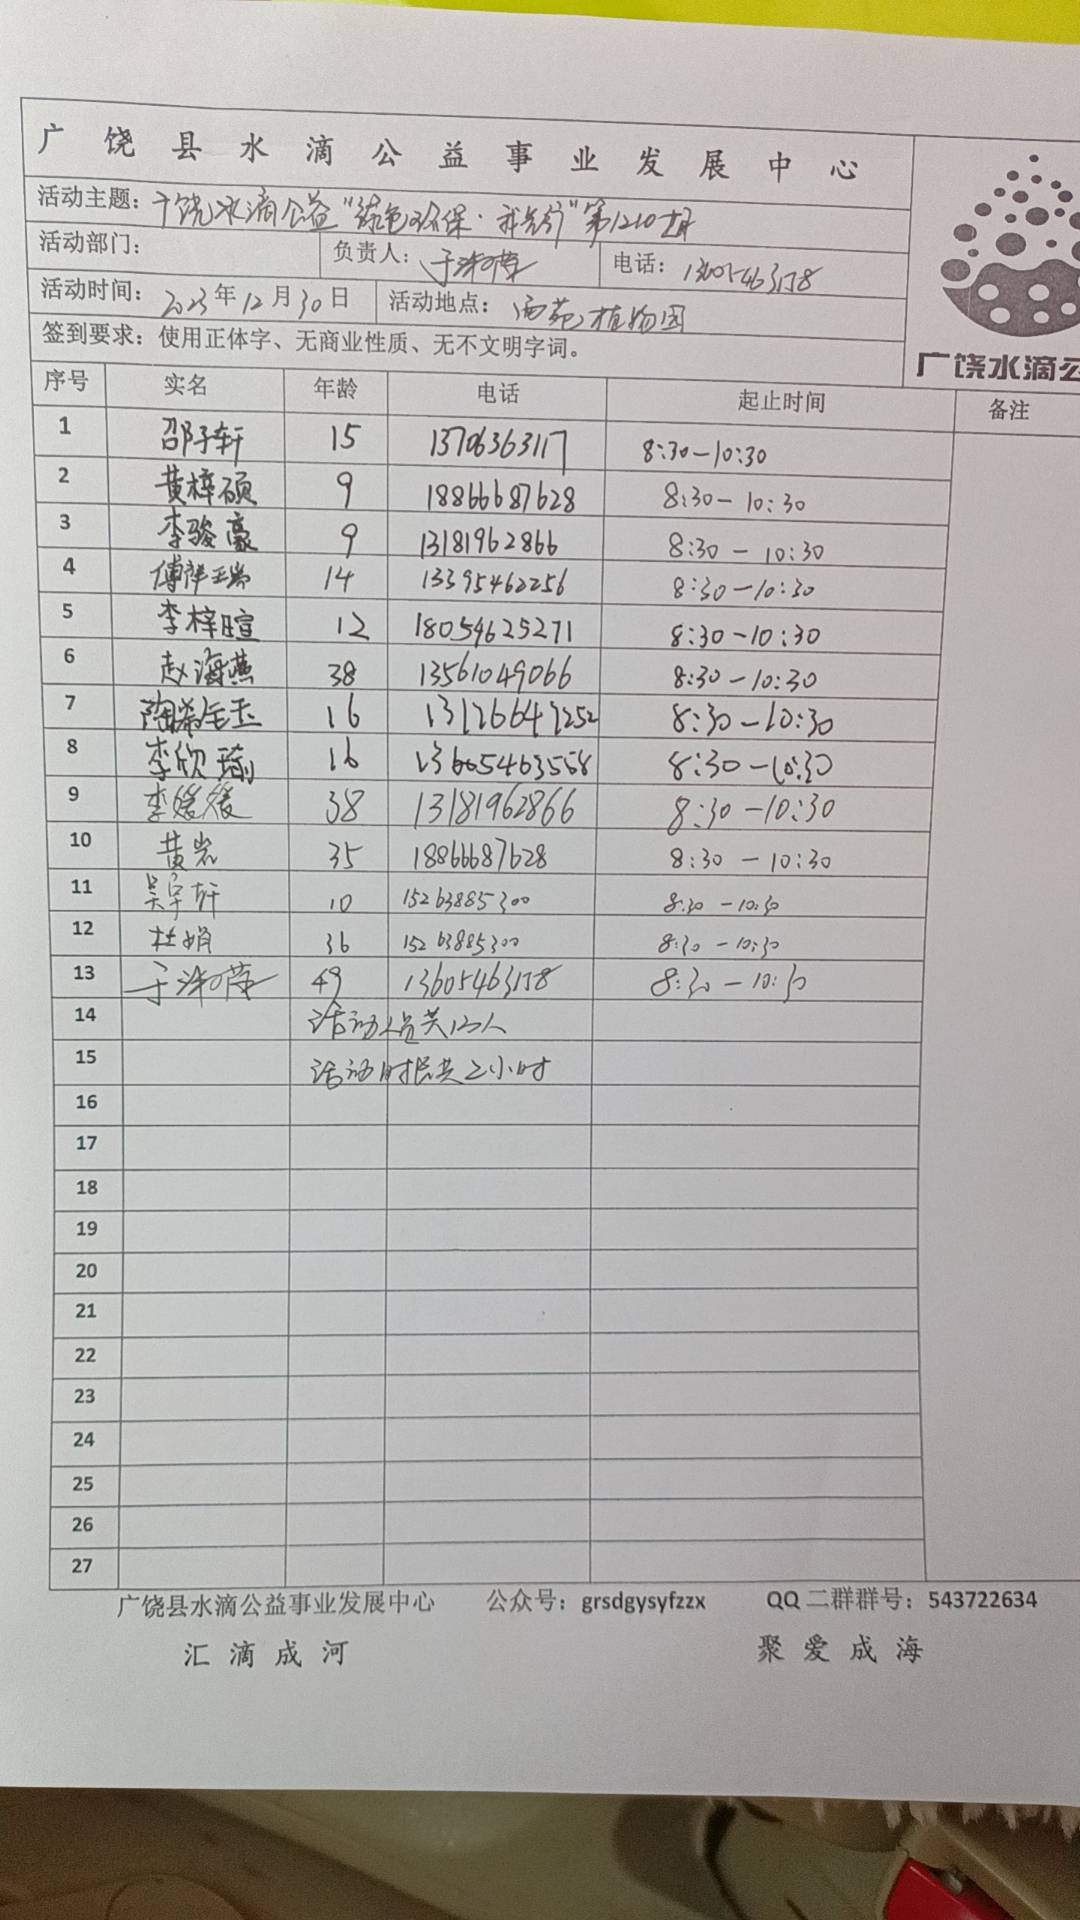 广饶县水滴公益事业发展中心
活动主题：广饶水滴公益“绿色环保·我先行”第1210期
活动部门： 负责人： 电话：
活动时间：2023年12月30日 活动地点：西苑植物园
签到要求：使用正体字、无商业性质、无不文明字词。
广饶水滴公
序号 实名 年龄 电话 起止时间 备注
1 邵子轩 15 13706363117 8:30-10:30
2 黄梓硕 9 18866687628 8:30-10:30
3 李骏豪 9 13181962866 8:30-10:30
4 傅祥瑞 14 13395462256 8:30-10:30
5 李梓暄 12 18054625271 8:30-10:30
6 赵海燕 38 13561049066 8:30-10:30
7 16 8:30-10:30
8 李欣瑜 16 8:30-10:30
9 李媛媛 38 13181962866 8:30-10:30
10 黄岩 35 18866687628 8:30-10:30
11 吴宇轩 10 15263885300 8:30-10:30
12 杜娟 36 15263885300 8:30-10:30
13 49 13605463158 8:30-10:30
14 活动人员共13人
15 活动时长共2小时
16
17
18
19
20
21
22
23
24
25
26
27
广饶县水滴公益事业发展中心 公众号：grsdgysyfzzx QQ二群群号：543722634
汇滴成河 聚爱成海